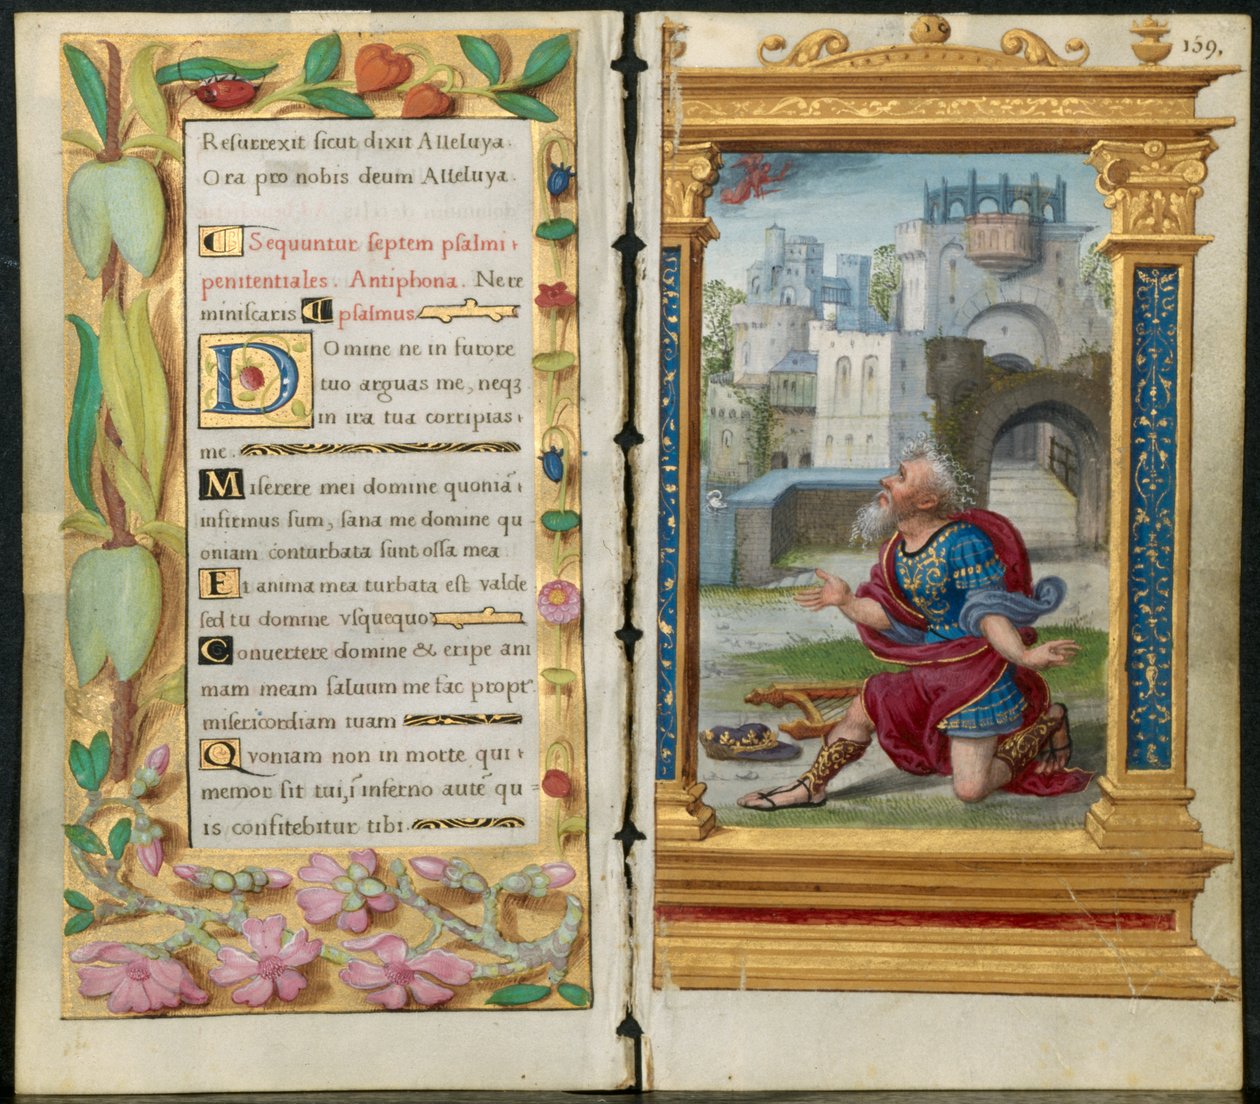 Resurrexit sicut dixit Alleluya.
Ora pro nobis deum Alleluya.
Sequuntur septem psalmi
penitentiales. Antiphona. Nere
miniscaris psalmus
Domine ne in furore
tuo arguas me, neqꝫ
in ira tua corripias
me.
Miserere mei domine quoniã
infirmus sum, sana me domine qu
oniam conturbata sunt ossa mea
Et anima mea turbata est valde
sed tu domine vsquequo
Conuertere domine & eripe ani
mam meam saluum me fac propt
misericordiam tuam
Qvoniam non in morte qui
memor sit tui, ĩ inferno autẽ qu
is confitebitur tibi.
159,